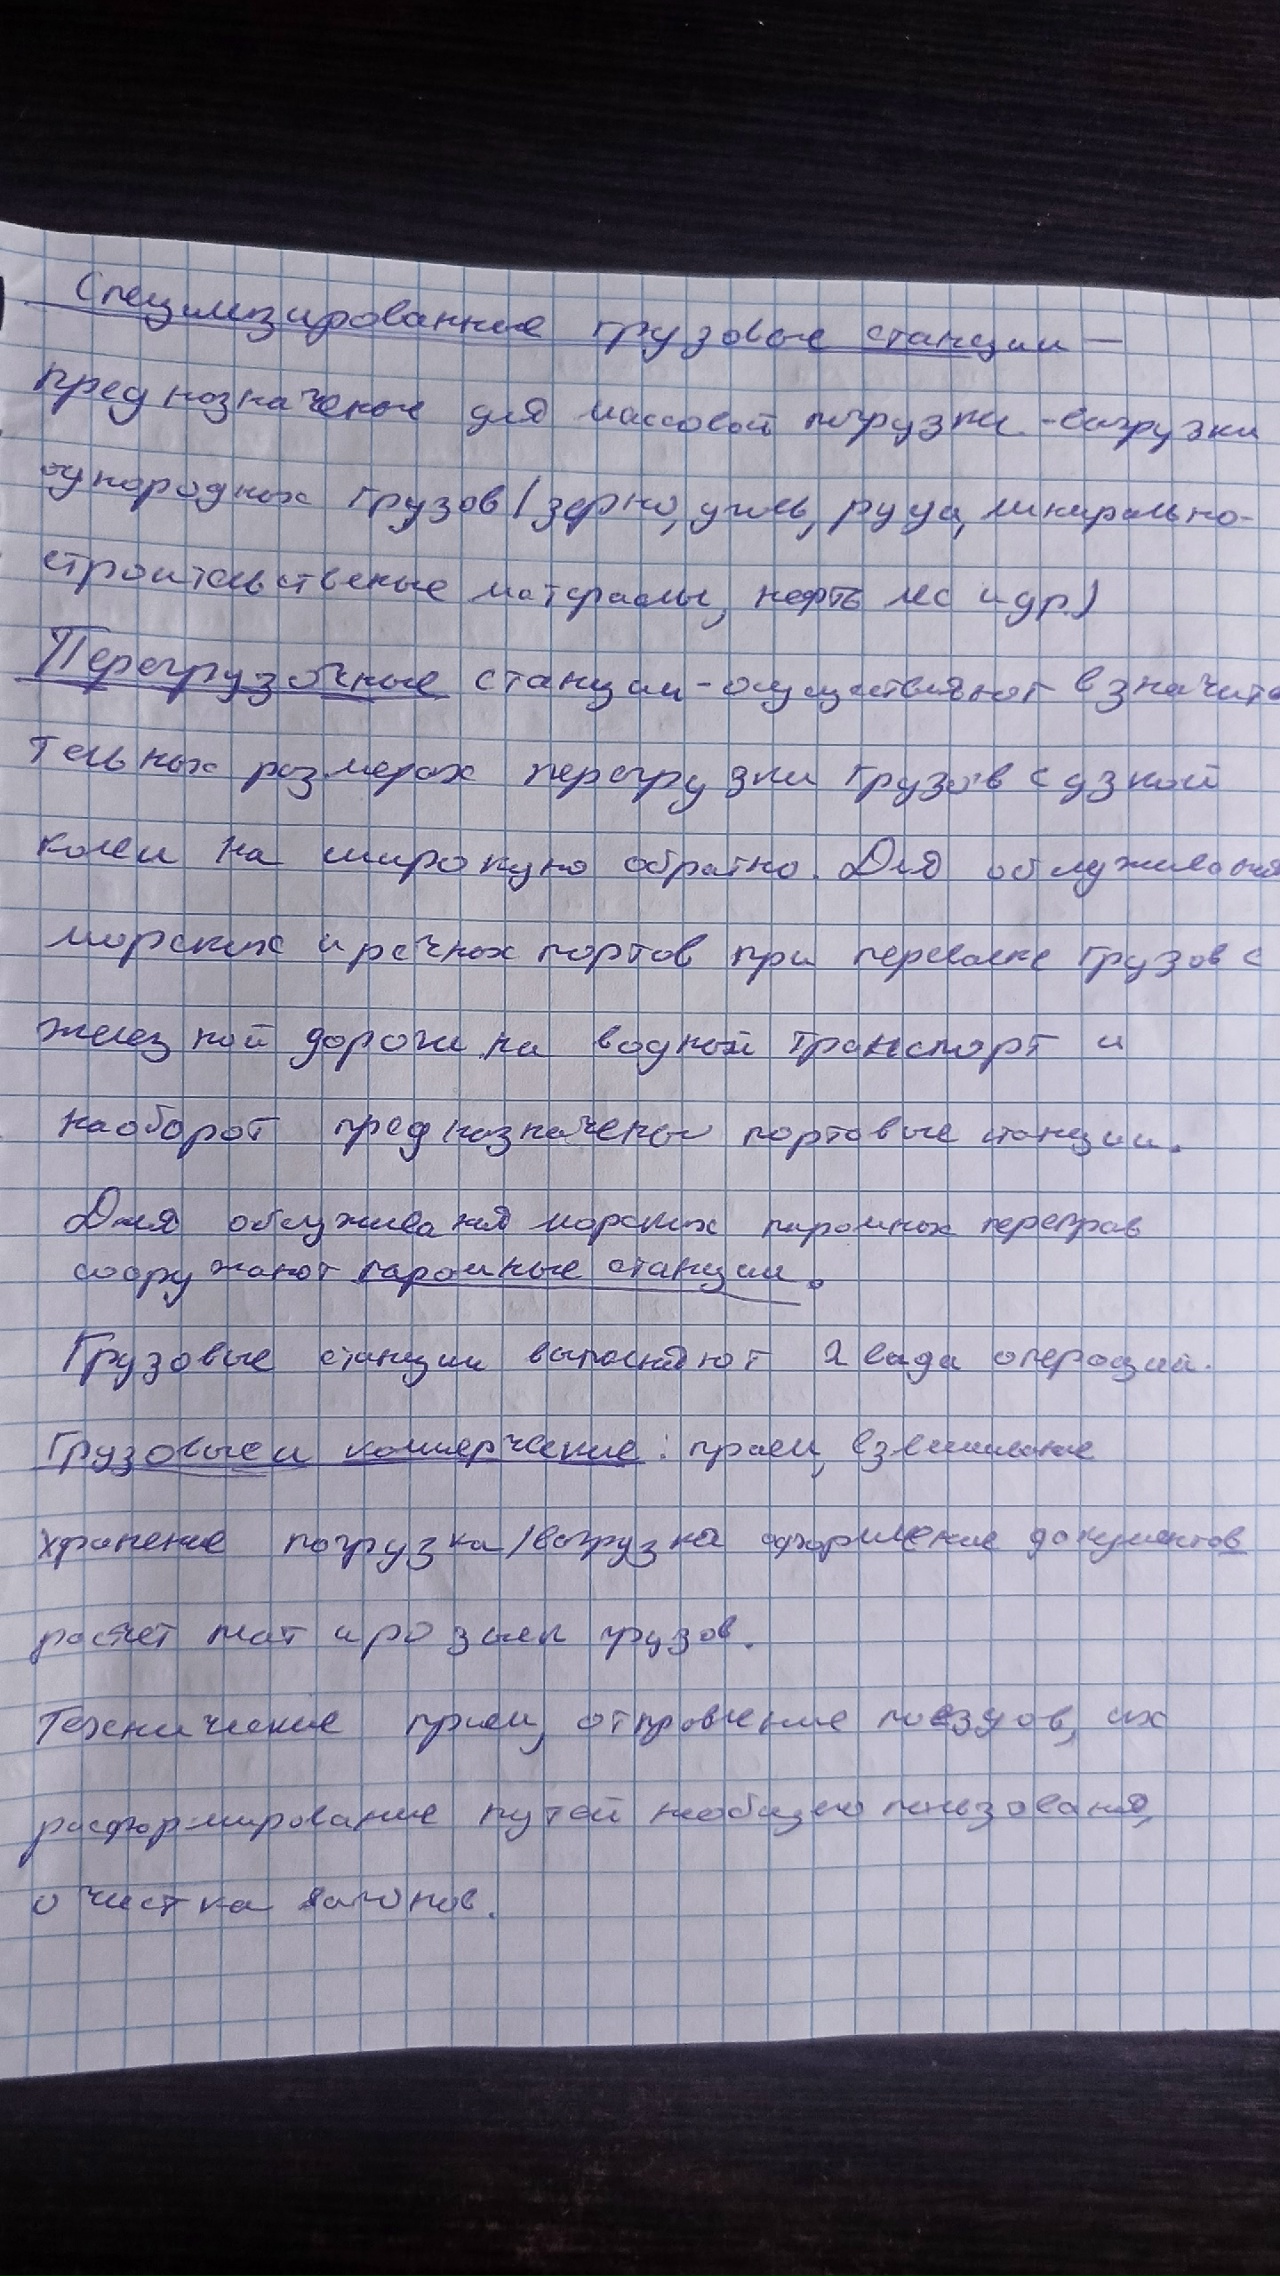 Специлизированные грузовые станции —
предназначеные для массовой погрузки-выгрузки
однородных грузов (зерно, уголь, руда, минерально-
строительственые материалы, нефть и др.)
Перегрузочные станции - осуществляют в значите
тельных размерах перегрузки грузов с узкой
колеи на широкую обратно. Для обслуживания
морских и речных портов при перевалке грузов с
железной дороги на водный транспорт и
наоборот предназначены портовые станции.
Для обслуживания морских паромных переправ
сооружают паромные станции.
Грузовые станции выполняют 2 вида операций.
Грузовые и коммерческие: прием, взвешивание
хранение погрузка/выгрузка оформление документов
расчет плат и розыск грузов.
Технические прием, отправление поездов, их
расформирование путей необщего пользования,
очистка вагонов.